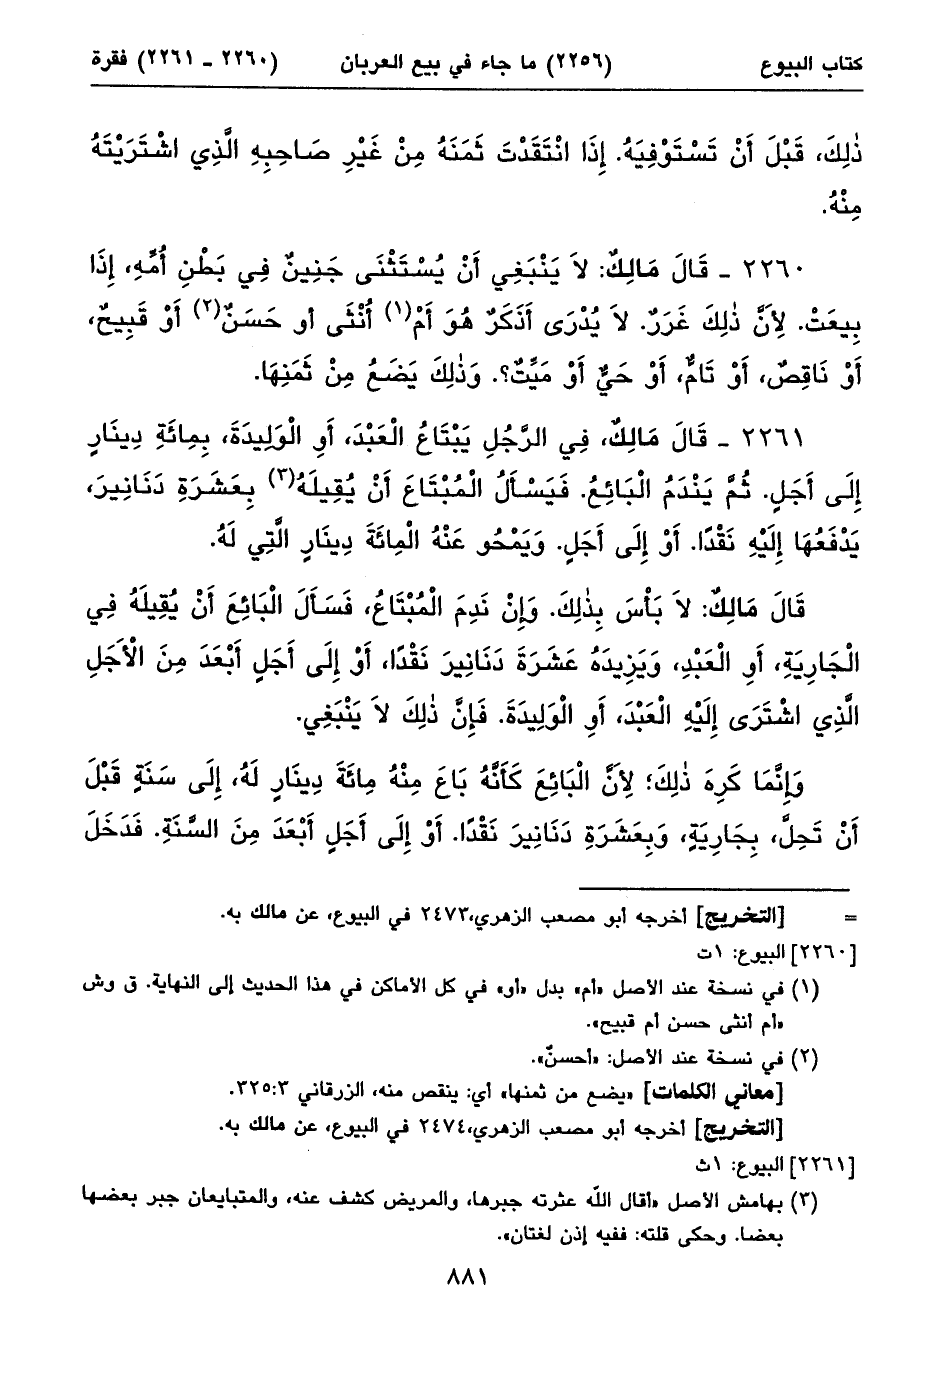 كتاب البيوع (٢٢٥٦) ما جاء في بيع العربان (٢٢٦٠ - ٢٢٦١) فقرة
ذٰلِكَ، قَبْلَ أَنْ تَسْتَوْفِيَهُ. إِذَا انْتَقَدْتَ ثَمَنَهُ مِنْ غَيْرِ صَاحِبِهِ الَّذِي اشْتَرَيْتَهُ
مِنْهُ.
٢٢٦٠ - قَالَ مَالِكٌ: لاَ يَنْبَغِي أَنْ يُسْتَثْنَى جَنِينٌ فِي بَطْنِ أُمِّهِ، إِذَا
بِيعَتْ. لِأَنَّ ذٰلِكَ غَرَرٌ. لاَ يُدْرَى أَذَكَرٌ هُوَ أَمْ(١) أُنْثَى أو حَسَنٌ(٢) أَوْ قَبِيحٌ،
أَوْ نَاقِصٌ، أَوْ تَامٌّ، أَوْ حَيٌّ أَوْ مَيِّتٌ؟. وَذٰلِكَ يَضَعُ مِنْ ثَمَنِهَا.
٢٢٦١ - قَالَ مَالِكٌ، فِي الرَّجُلِ يَبْتَاعُ الْعَبْدَ، أَوِ الْوَلِيدَةَ، بِمِائَةِ دِينَارٍ
إِلَى أَجَلٍ. ثُمَّ يَنْدَمُ الْبَائِعُ. فَيَسْأَلُ الْمُبْتَاعَ أَنْ يُقِيلَهُ(٣) بِعَشَرَةِ دَنَانِيرَ،
يَدْفَعُهَا إِلَيْهِ نَقْدًا. أَوْ إِلَى أَجَلٍ. وَيَمْحُو عَنْهُ الْمِائَةَ دِينَارٍ الَّتِي لَهُ.
قَالَ مَالِكٌ: لاَ بَأْسَ بِذٰلِكَ. وَإِنْ نَدِمَ الْمُبْتَاعُ، فَسَأَلَ الْبَائِعَ أَنْ يُقِيلَهُ فِي
الْجَارِيَةِ، أَوِ الْعَبْدِ، وَيَزِيدَهُ عَشَرَةَ دَنَانِيرَ نَقْدًا، أَوْ إِلَى أَجَلٍ أَبْعَدَ مِنَ الْأَجَلِ
الَّذِي اشْتَرَى إِلَيْهِ الْعَبْدَ، أَوِ الْوَلِيدَةَ. فَإِنَّ ذٰلِكَ لاَ يَنْبَغِي.
وَإِنَّمَا كَرِهَ ذٰلِكَ؛ لِأَنَّ الْبَائِعَ كَأَنَّهُ بَاعَ مِنْهُ مِائَةَ دِينَارٍ لَهُ، إِلَى سَنَةٍ قَبْلَ
أَنْ تَحِلَّ، بِجَارِيَةٍ، وَبِعَشَرَةِ دَنَانِيرَ نَقْدًا. أَوْ إِلَى أَجَلٍ أَبْعَدَ مِنَ السَّنَةِ. فَدَخَلَ
= [التخريج] أخرجه أبو مصعب الزهري،٢٤٧٣ في البيوع، عن مالك به.
[٢٢٦٠] البيوع: ١ت
(١) في نسخة عند الأصل «أم» بدل «أو» في كل الأماكن في هذا الحديث إلى النهاية. ق وش
«أم أنثى حسن أم قبيح».
(٢) في نسخة عند الأصل: «أحسنٌ».
[معاني الكلمات] «يضع من ثمنها» أي: ينقص منه، الزرقاني ٣٢٥:٣.
[التخريج] أخرجه أبو مصعب الزهري،٢٤٧٤ في البيوع، عن مالك به.
[٢٢٦١] البيوع: ١ث
(٣) بهامش الأصل «أقال اللّه عثرته جبرها، والمريض كشف عنه، والمتبايعان جبر بعضها
بعضا. وحكى قلته: ففيه إذن لغتان».
٨٨١